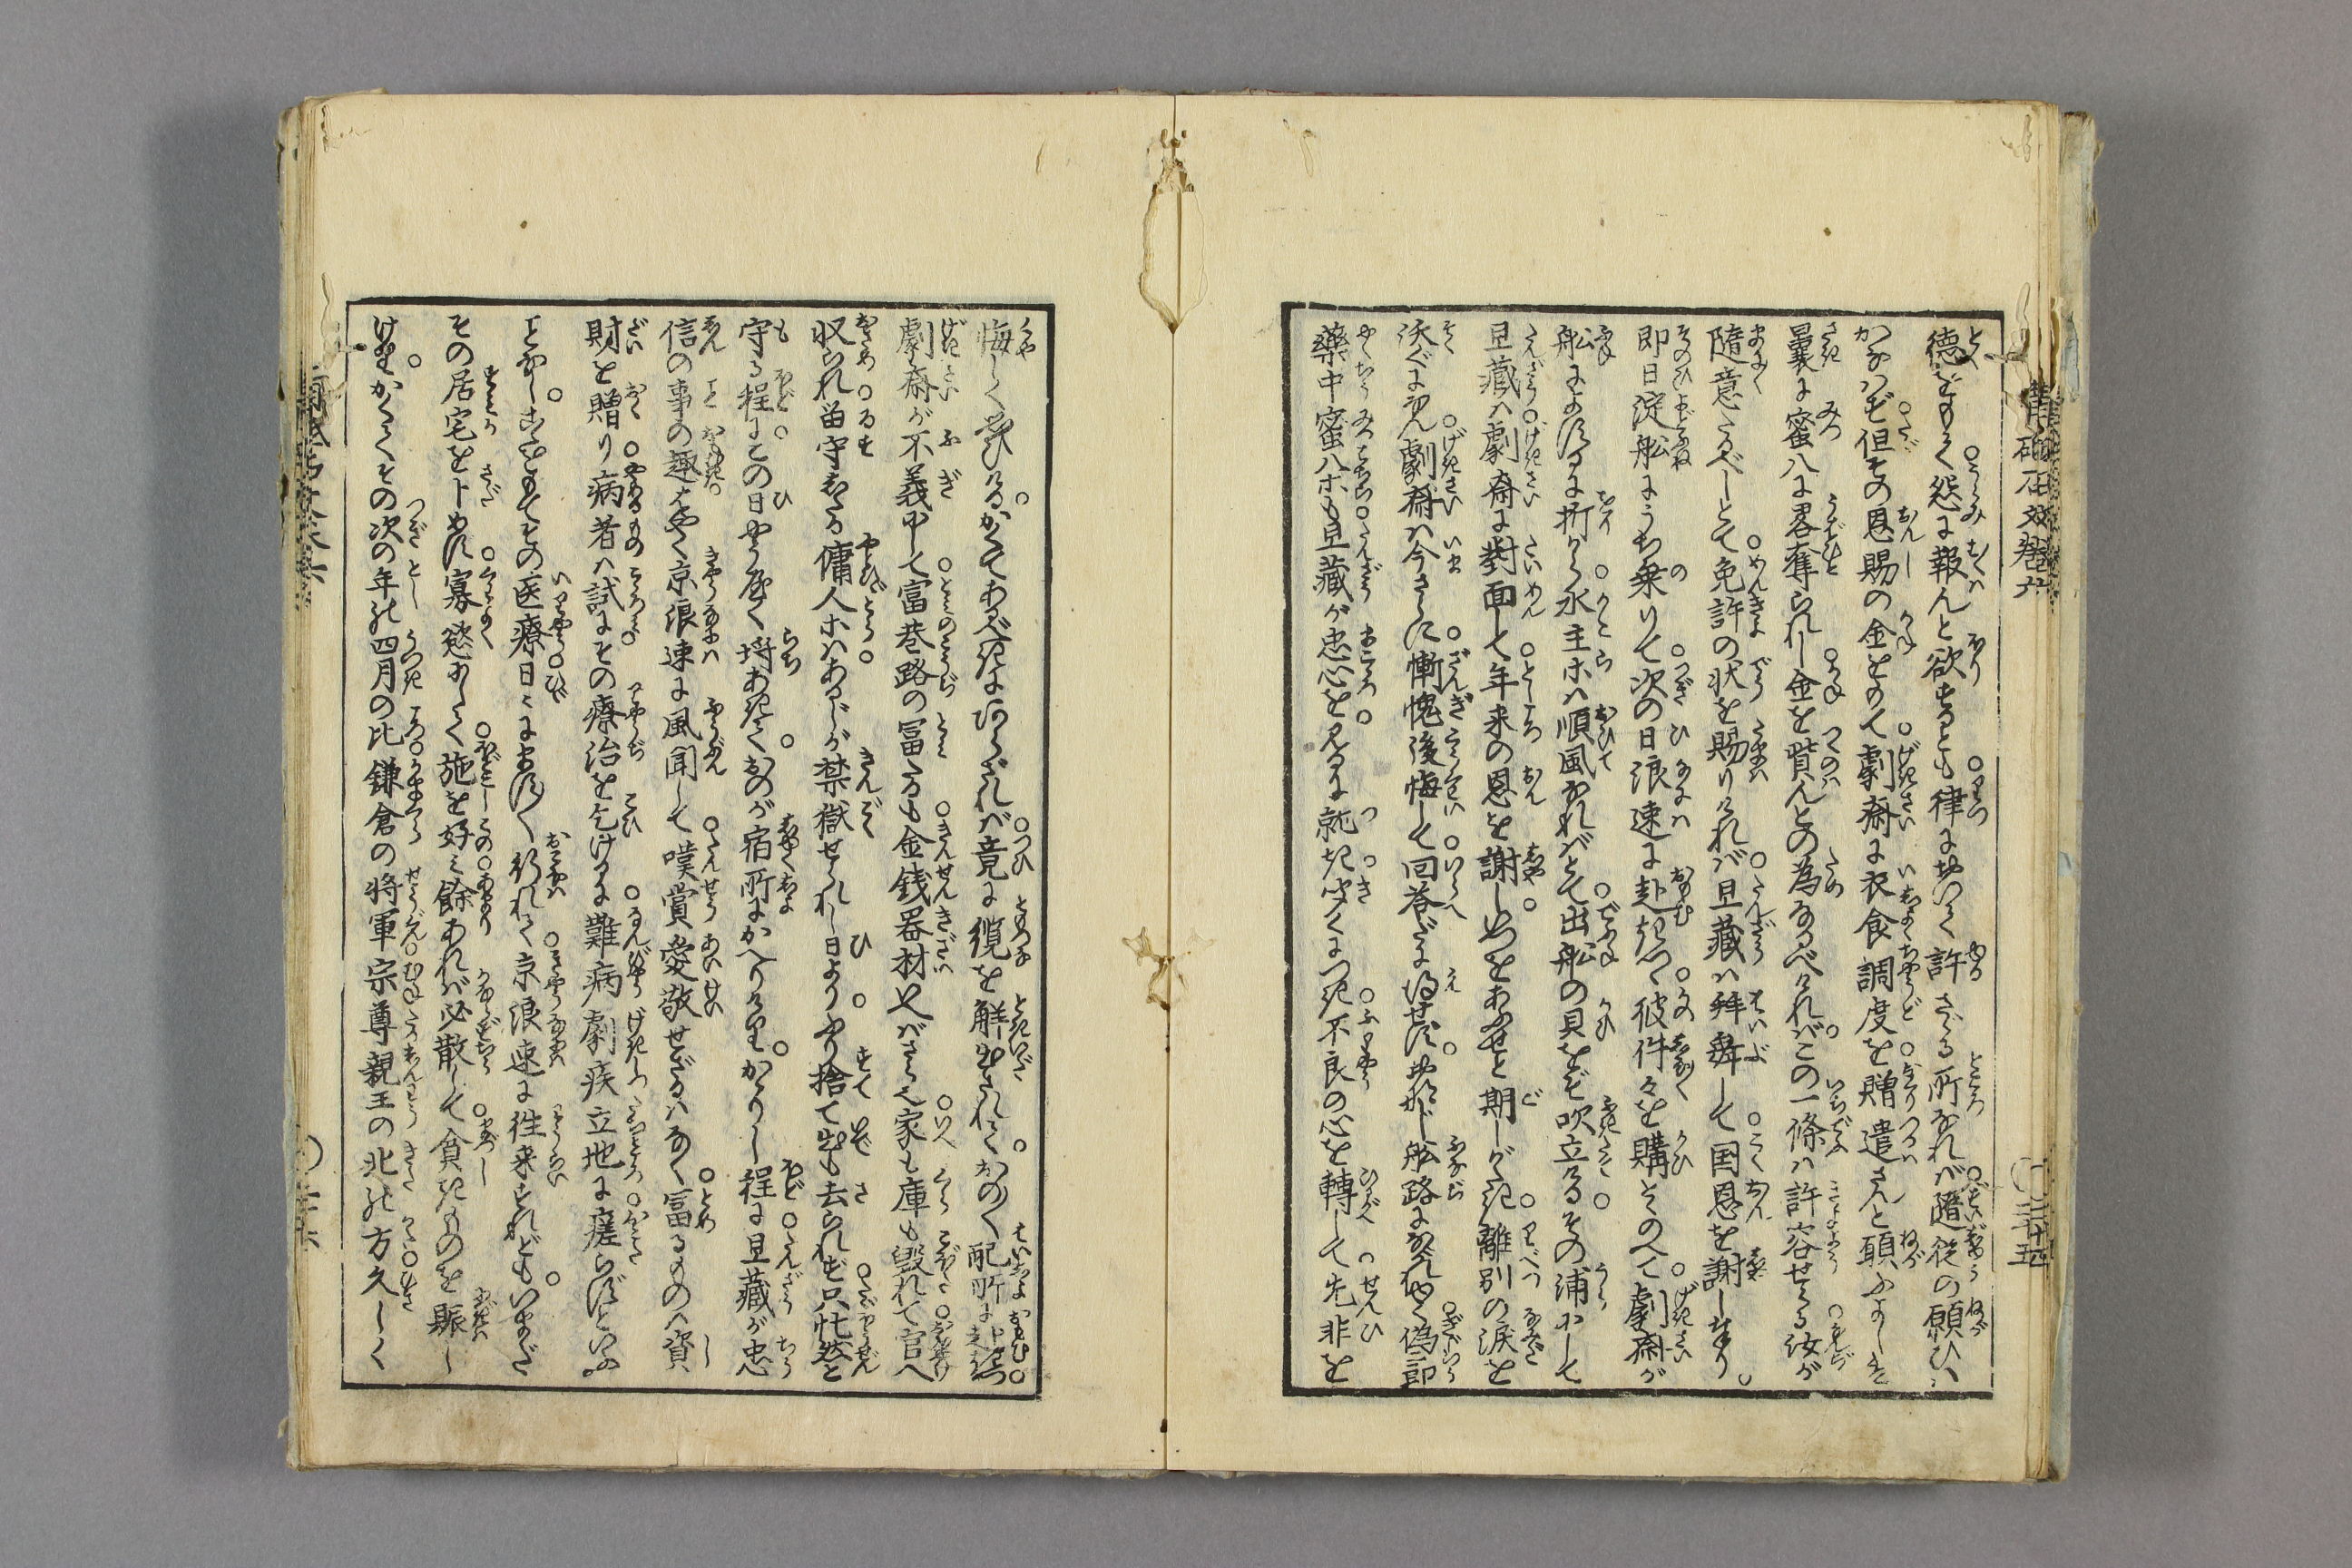 徳をもて怨に報んと欲するとも律に於て許さゞる所なれば隨從の願ひハ
かなはず但その恩賜の金をもて劇齋に衣食調度を贈遣さんと願ふよしハ
曩に蜜八に畧奪られし金を贖んとの為なるべければこの一條ハ許容せらる汝が
隨意たるべしとて免許の状を賜りければ旦藏ハ拜舞して国恩を謝し奉り
即日淀船にうち乗りて次の日浪速に赴きつゝ彼件々を購とゝのへて劇齋が
船によするに折から水主ホハ順風なればとて出船の貝をぞ吹立けるその浦にして
旦藏ハ劇齋に對面して年来の恩を謝しめつをあふせと期しがたき離別の涙を
沃ぐにぞ劇齋ハ今さらに慚愧後悔して回荅だに得せず
藥中蜜八ホも旦藏が忠心を見るに就き聞くにつき不良の心を轉して先非を
悔しく思ひけるかくてあるべきにあらざれば竟に纜を解出されておの〳〵配所に赴きつ
劇齋が不義にして富巷路の冨たるも金銭器材いへばさら也家も庫も毀れて官へ
収られ留守せる傭人ホハあるじが禁獄せられし日よりふり捨て出も去られず只忙然と
守る程にこの日やうやく埒あきておのが宿所にかへりけりかゝりし程に旦藏が忠
信の事の趣はやく京浪速に風聞して嘆賞愛敬せざるハなく冨るものハ資
財を贈り病者ハ試にその療治を乞けるに難病劇疾立地に瘥らずといふ
ことなしこゝをもてその医療日〻にます〳〵行れて京浪速に往来すれどもいまだ
その居宅を卜めず寡慾にして施を好み餘あれバ必散して貪きものを賑し
けりかくてその次の年の四月の比鎌倉の将軍宗尊親王の北の方久しく